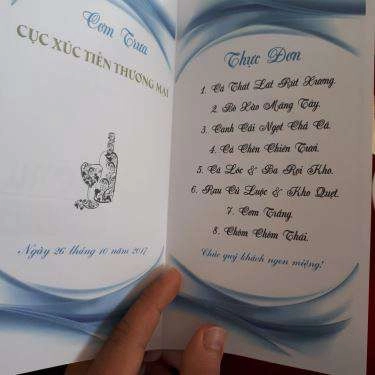 Cơm Trưa
CỤC XÚC TIẾN THƯƠNG MẠI
Ngày 26 tháng 10 năm 2017
Thực Đơn
1. Cá Thát Lát Rút Xương.
2. Bò Xào Măng Tây.
3. Canh Cải Ngọt Chả Cá.
4. Cá Chẽn Chiên Tươi.
5. Cá Lóc & Ba Rọi Kho.
6. Rau Củ Luộc & Kho Quẹt.
7. Cơm Trắng.
8. Chôm Chôm Thái.
Chúc quý khách ngon miệng!